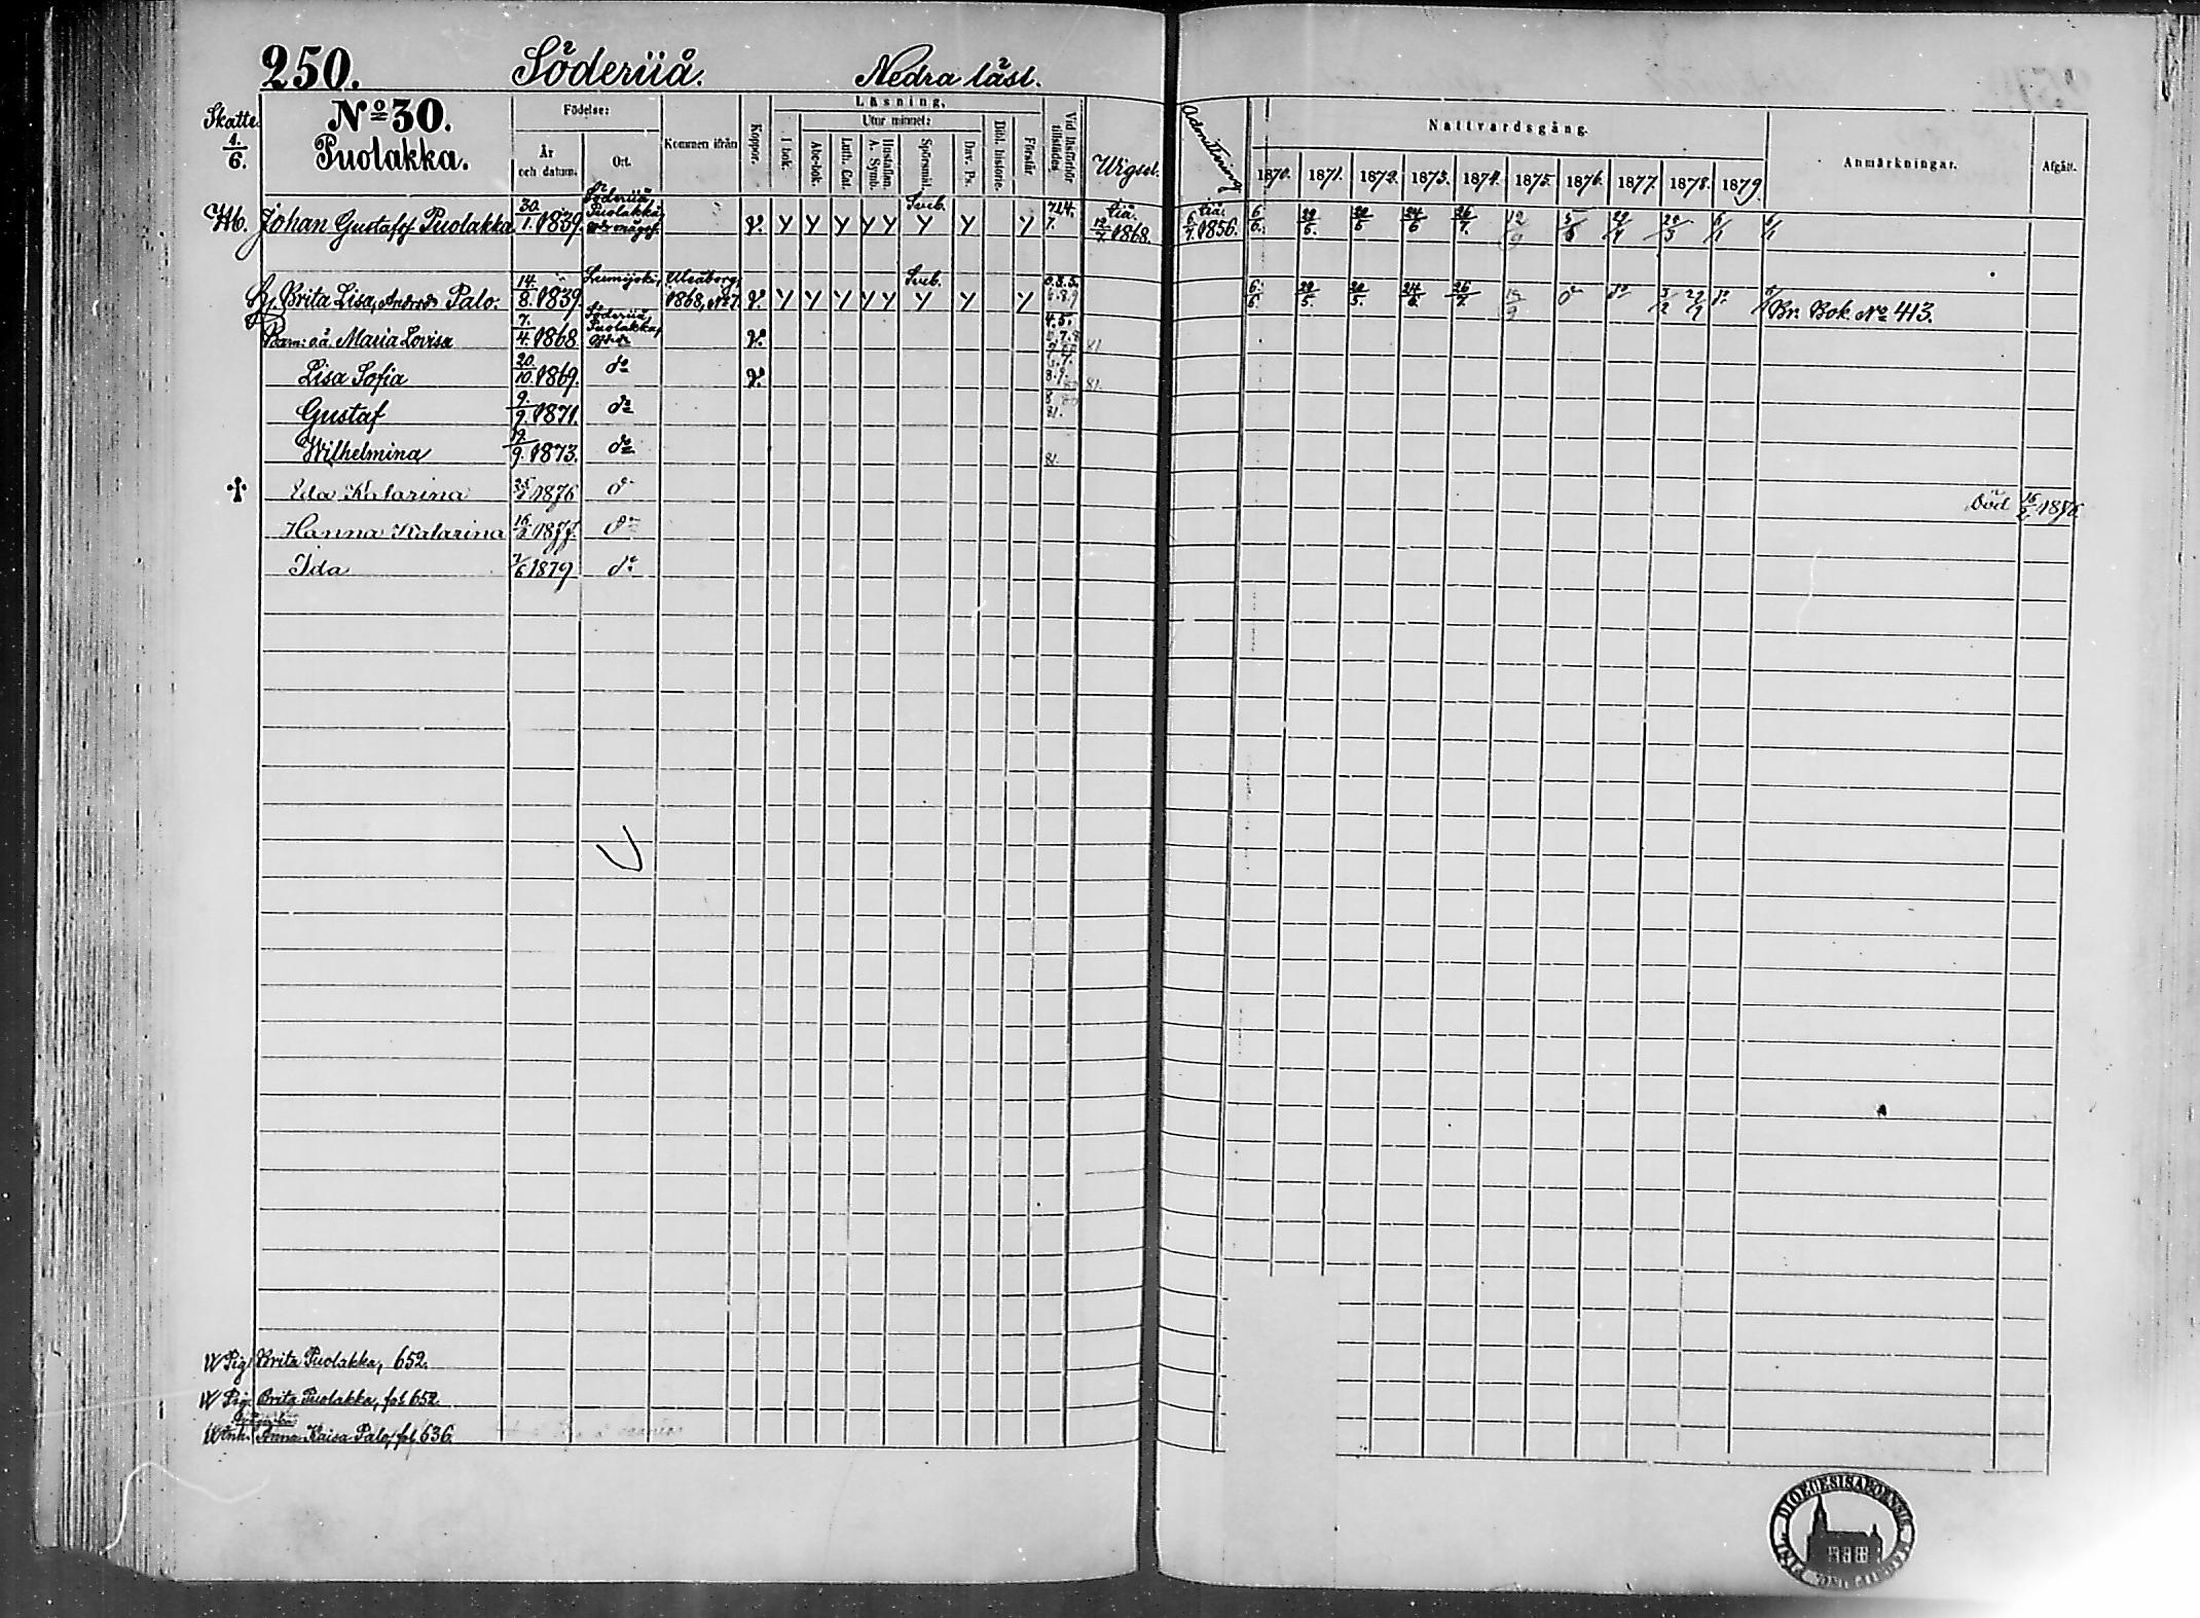 250. Söderiiå. Nedra läsl.
Skatte 1/6. No 30. Puolakka.
Födelse:
År och datum.
Ort.
Kommen ifrån
Koppor.
Läsning,
I bok.
Utur minnet:
Abc-bok.
Luth. Cat.
Hustaflan. A. Symb.
Spörsmål.
Dav. Ps.
Bibl. historie.
Förstår
Vid läsförhör tillstädes
Wigsel.
Admittering
Nattvardsgång.
1870. 1871. 1872. 1873. 1874. 1875. 1876. 1877. 1878. 1879.
Anmärkningar.
Afgått.
Johan Gustafs. Puolakka 30/1. 1839. Söderiiå Puolakka v. y y y y y Sveb. y y y 7. liå. 12/7. 1868. liå. 6/7. 1856. 6/6. 29/5. 24/6 26/7. 12/9
Hu. Brita Lisa, Andersd. Palo. 14./8. 1839. Lumijoki, Uleåborg 1868, No 7. v. y y y y y Sveb. y y y 6/6. 29/5. 24/6. 26/7. 12/9 do do Br. Bok No 413.
Barn: Maria Lovisa 7./4. 1868 Söderiiå Puolakka v.
Lisa Sofia 20/10. 1869. do v. 81.
Gustaf 9./9. 1871. do 81.
Wilhelmina 19/9. 1873. do 81.
† Ida Katarina 1876 do död 16/2 1876.
Hanna Katarina 1877. do
Ida 7/6 1879 do
W Pig. Brita Puolakka, 652.
W Pig. Brita Puolakka, fol 652.
Anna Kaisa Palo, fol 636.
DIOECESIS ABOENSIS